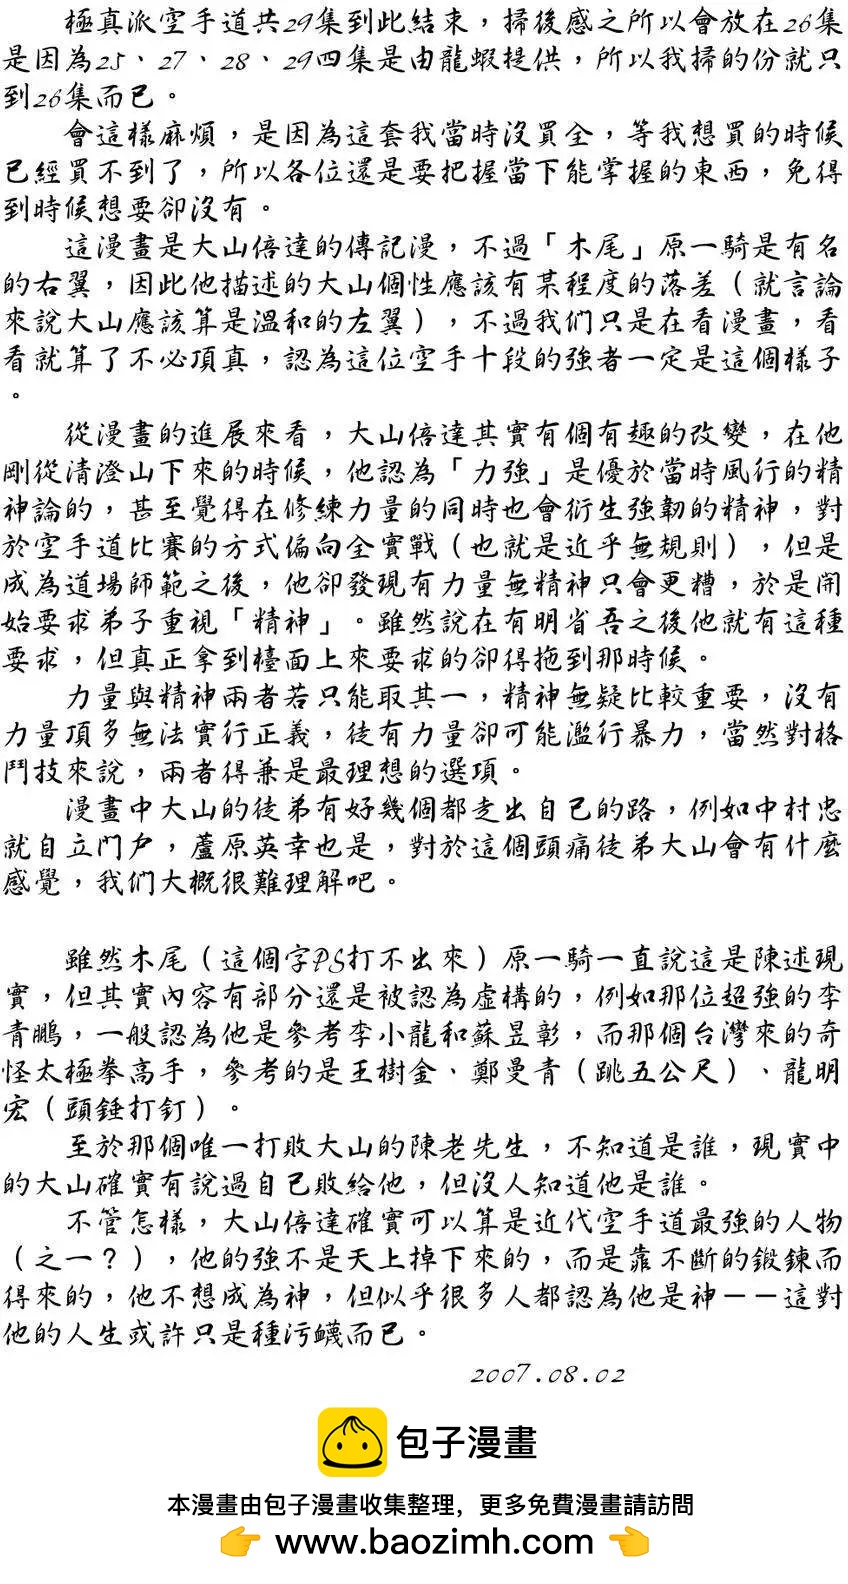 極真派空手道共29集到此結束，掃後感之所以會放在26集
是因為25、27、28、29四集是由龍蝦提供，所以我掃的份就只
到26集而已。
會這樣麻煩，是因為這套我當時沒買全，等我想買的時候
已經買不到了，所以各位還是要把握當下能掌握的東西，免得
到時候想要卻沒有。
這漫畫是大山倍達的傳記漫，不過「木尾」原一騎是有名
的右翼，因此他描述的大山個性應該有某程度的落差（就言論
來說大山應該算是溫和的左翼），不過我们只是在看漫畫，看
看就算了不必頂真，認為這位空手十段的強者一定是這個樣子
。
從漫畫的進展來看，大山倍達其實有個有趣的改變，在他
剛從清澄山下來的時候，他認為「力強」是優於當時風行的精
神論的，甚至覺得在修練力量的同時也會衍生強韌的精神，對
於空手道比賽的方式偏向全實戰（也就是近乎無規則），但是
成為道場師範之後，他卻發現有力量無精神只會更糟，於是開
始要求弟子重視「精神」。雖然說在有明省吾之後他就有這種
要求，但真正拿到檯面上來要求的卻得拖到那時候。
力量與精神兩者若只能取其一，精神無疑比較重要，沒有
力量頂多無法實行正義，徒有力量卻可能濫行暴力，當然對格
鬥技來說，兩者得兼是最理想的選項。
漫畫中大山的徒弟有好幾個都走出自己的路，例如中村忠
就自立門戶，蘆原英幸也是，對於這個頭痛徒弟大山會有什麼
感覺，我们大概很難理解吧。
雖然木尾（這個字PS打不出來）原一騎一直說這是陳述現
實，但其實內容有部分還是被認為虛構的，例如那位超強的李
青鵬，一般認為他是參考李小龍和蘇昱彰，而那個台灣來的奇
怪太極拳高手，參考的是王樹金、鄭曼青（跳五公尺）、龍明
宏（頭錘打釘）。
至於那個唯一打敗大山的陳老先生，不知道是誰，現實中
的大山確實有說過自己敗給他，但沒人知道他是誰。
不管怎樣，大山倍達確實可以算是近代空手道最強的人物
（之一？），他的強不是天上掉下來的，而是靠不斷的鍛鍊而
得來的，他不想成為神，但似乎很多人都認為他是神－－這對
他的人生或許只是種污衊而已。
2007.08.02
包子漫畫
本漫畫由包子漫畫收集整理，更多免費漫畫請訪問
👉 www.baozimh.com 👈